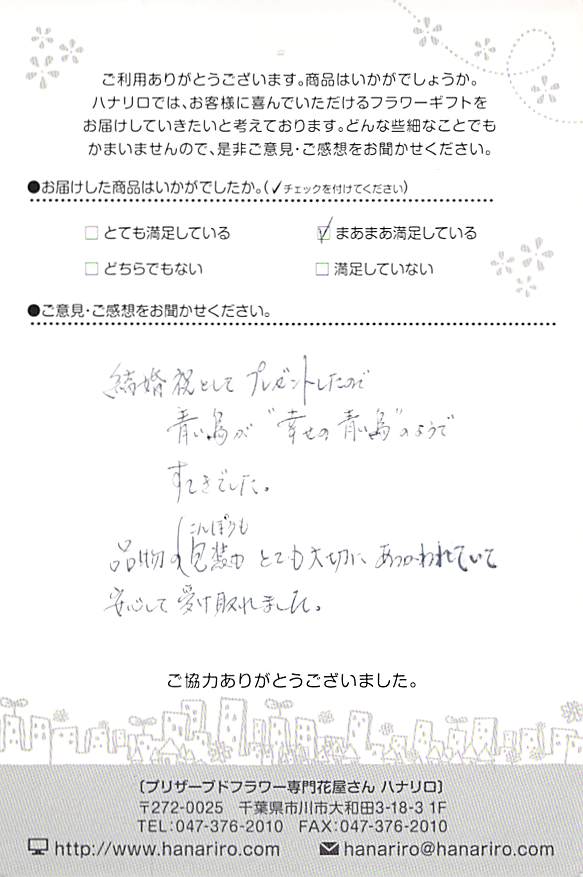 ご利用ありがとうございます。商品はいかがでしょうか。
ハナリロでは、お客様に喜んでいただけるフラワーギフトを
お届けしていきたいと考えております。どんな些細なことでも
かまいませんので、是非ご意見・ご感想をお聞かせください。
●お届けした商品はいかがでしたか。(✓チェックを付けてください)
□ とても満足している ☑ まあまあ満足している
□ どちらでもない □ 満足していない
●ご意見・ご感想をお聞かせください。
結婚祝としてプレゼントしたので
青い鳥が"幸せの青い鳥"のようで
すてきでした。
こんぽうも
品物の(包装も とても大切に あつかわれていて
安心して受け取れました。
ご協力ありがとうございました。
〔プリザーブドフラワー専門花屋さん ハナリロ〕
〒272-0025 千葉県市川市大和田3-18-3 1F
TEL:047-376-2010 FAX:047-376-2010
http://www.hanariro.com hanariro@hanariro.com